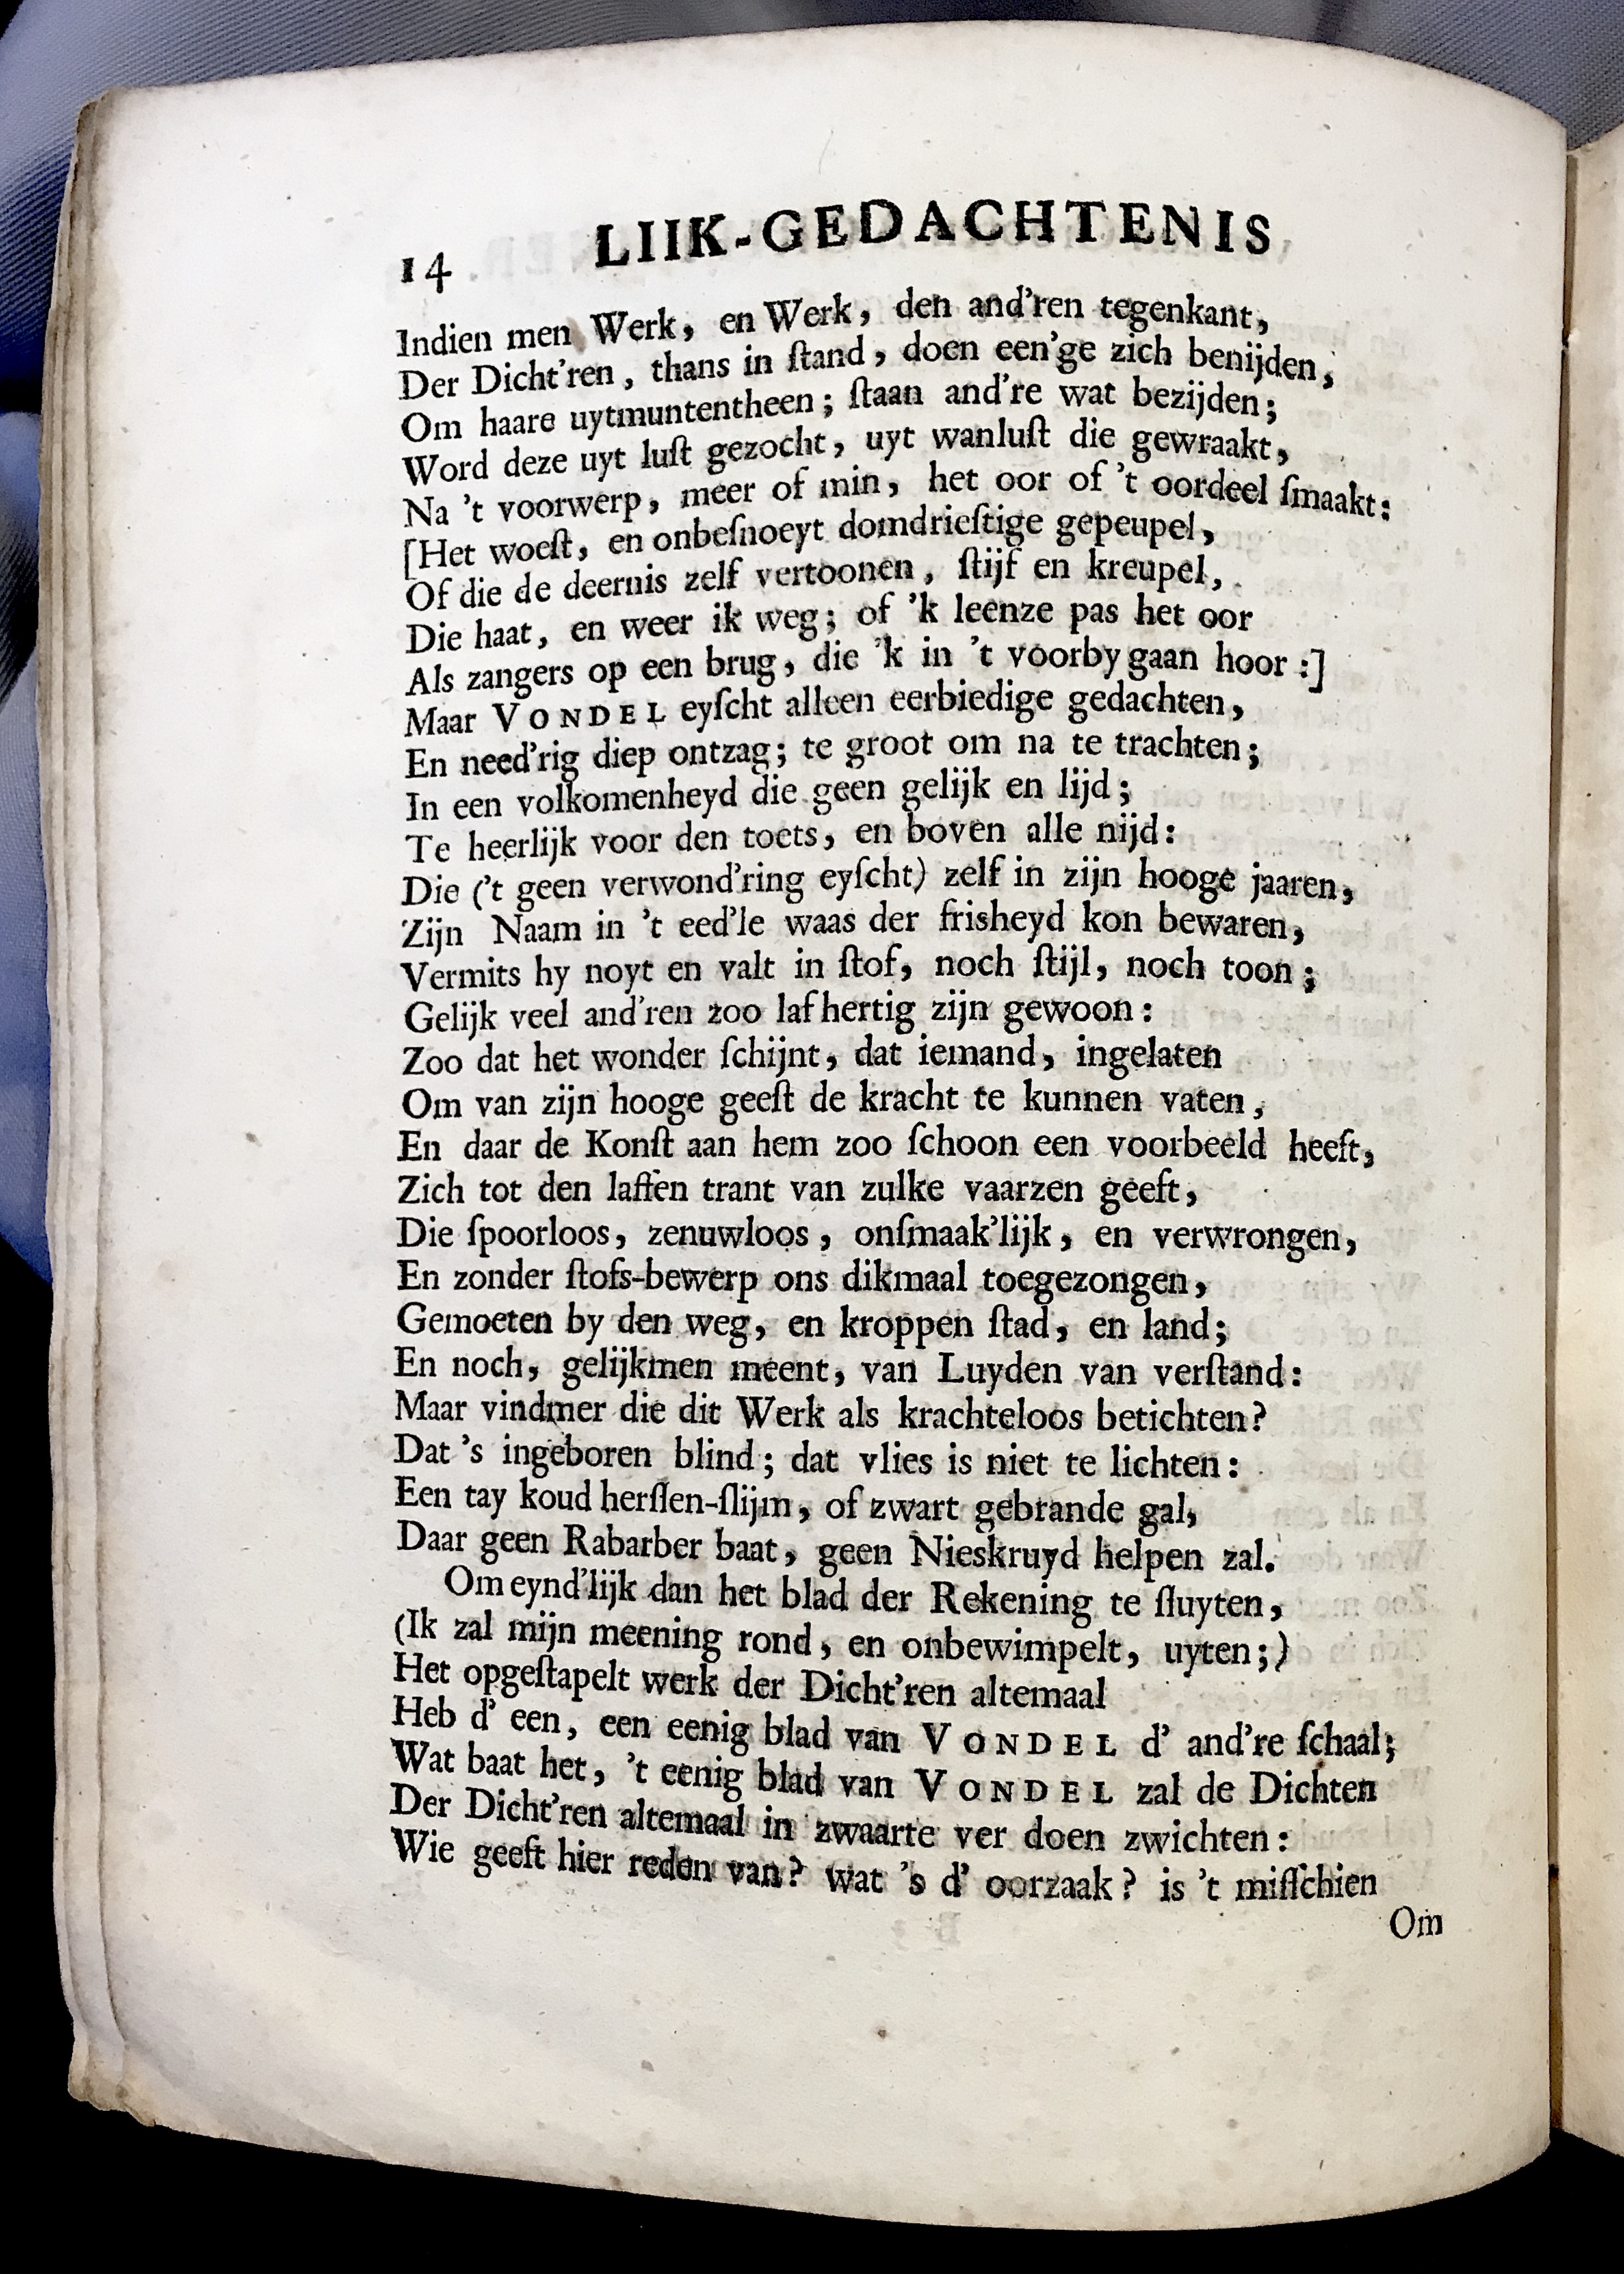 14 LIIK-GEDACHTENIS
Indien men Werk, en Werk, den and'ren tegenkant,
Der Dicht'ren, thans in ſtand, doen een'ge zich benijden,
Om haare uytmuntentheen; ſtaan and're wat bezijden;
Word deze uyt luſt gezocht, uyt wanluſt die gewraakt,
Na 't voorwerp, meer of min, het oor of 't oordeel ſmaakt:
[Het woeſt, en onbeſnoeyt domdrieſtige gepeupel,
Of die de deernis zelf vertoonen, ſtijf en kreupel,
Die haat, en weer ik weg; of 'k leenze pas het oor
Als zangers op een brug, die 'k in 't voorby gaan hoor:]
Maar VONDEL eyſcht alleen eerbiedige gedachten,
En need'rig diep ontzag; te groot om na te trachten;
In een volkomenheyd die geen gelijk en lijd;
Te heerlijk voor den toets, en boven alle nijd:
Die ('t geen verwond'ring eyſcht) zelf in zijn hooge jaaren,
Zijn Naam in 't eed'le waas der frisheyd kon bewaren,
Vermits hy noyt en valt in ſtof, noch ſtijl, noch toon;
Gelijk veel and'ren zoo laf hertig zijn gewoon:
Zoo dat het wonder ſchijnt, dat iemand, ingelaten
Om van zijn hooge geeſt de kracht te kunnen vaten,
En daar de Konſt aan hem zoo ſchoon een voorbeeld heeft,
Zich tot den laffen trant van zulke vaarzen geeft,
Die ſpoorloos, zenuwloos, onſmaak'lijk, en verwrongen,
En zonder ſtofs-bewerp ons dikmaal toegezongen,
Gemoeten by den weg, en kroppen ſtad, en land;
En noch, gelijkmen meent, van Luyden van verſtand:
Maar vindmer die dit Werk als krachteloos betichten?
Dat 's ingeboren blind; dat vlies is niet te lichten:
Een tay koud herſſen-ſlijm, of zwart gebrande gal,
Daar geen Rabarber baat, geen Nieskruyd helpen zal.
Om eynd'lijk dan het blad der Rekening te ſluyten,
(Ik zal mijn meening rond, en onbewimpelt, uyten;)
Het opgeſtapelt werk der Dicht'ren altemaal
Heb d' een, een eenig blad van VONDEL d' and're ſchaal;
Wat baat het, 't eenig blad van VONDEL zal de Dichten
Der Dicht'ren altemaal in zwaarte ver doen zwichten:
Wie geeft hier reden van? wat 's d' oorzaak? is 't miſſchien
Om